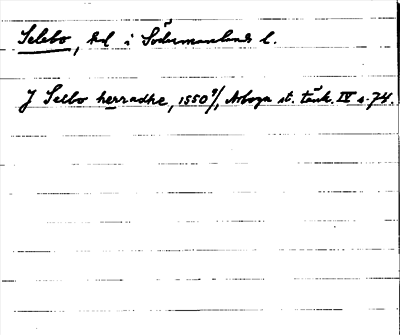 Selebo, hd i Södermanlands l.
J Selbo herradhe, 1550 9/1, Arboga st. tänk. IV s. 74.